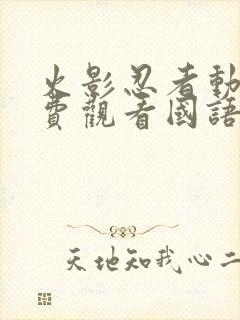 火影忍者動
費觀看國語
天地知我心二